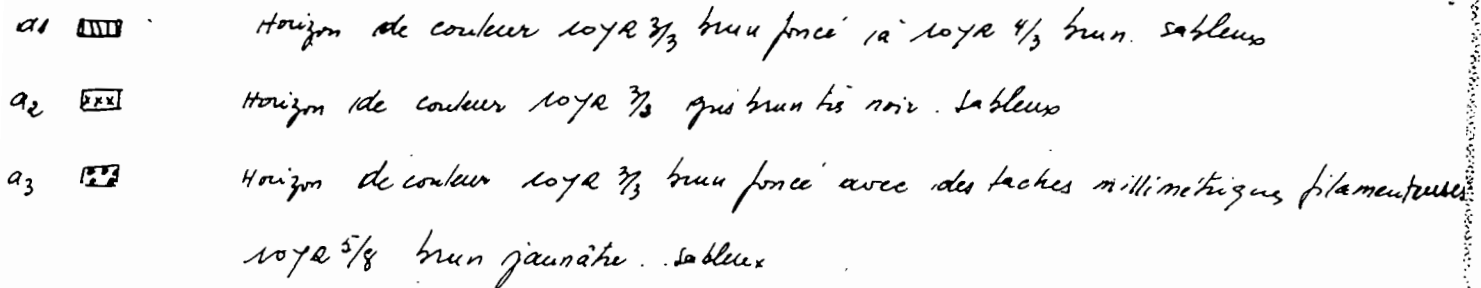 a1 Horizon de couleur 10YR 3/3 brun foncé à 10YR 4/3 brun. Sableux
a2 Horizon de couleur 10YR 3/3 gris brun très noir. Sableux
a3 Horizon de couleur 10YR 3/3 brun foncé avec des taches millimétriques filamenteuses
10YR 5/8 brun jaunâtre. Sableux